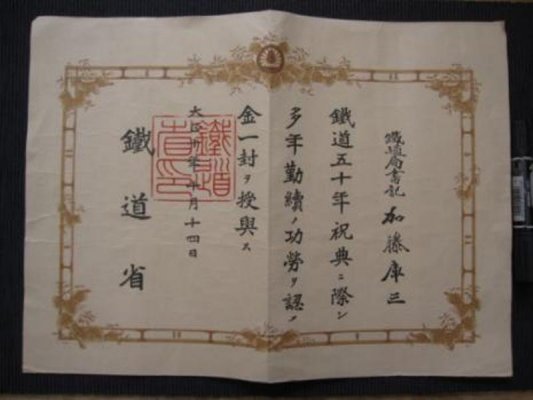 鐵道局書記 加藤庫三
鐵道五十年祝典ニ際シ
多年勤續ノ功勞ヲ認メ
金一封ヲ授與ス
大正十年十月十四日
鐵道省
鐵道省印